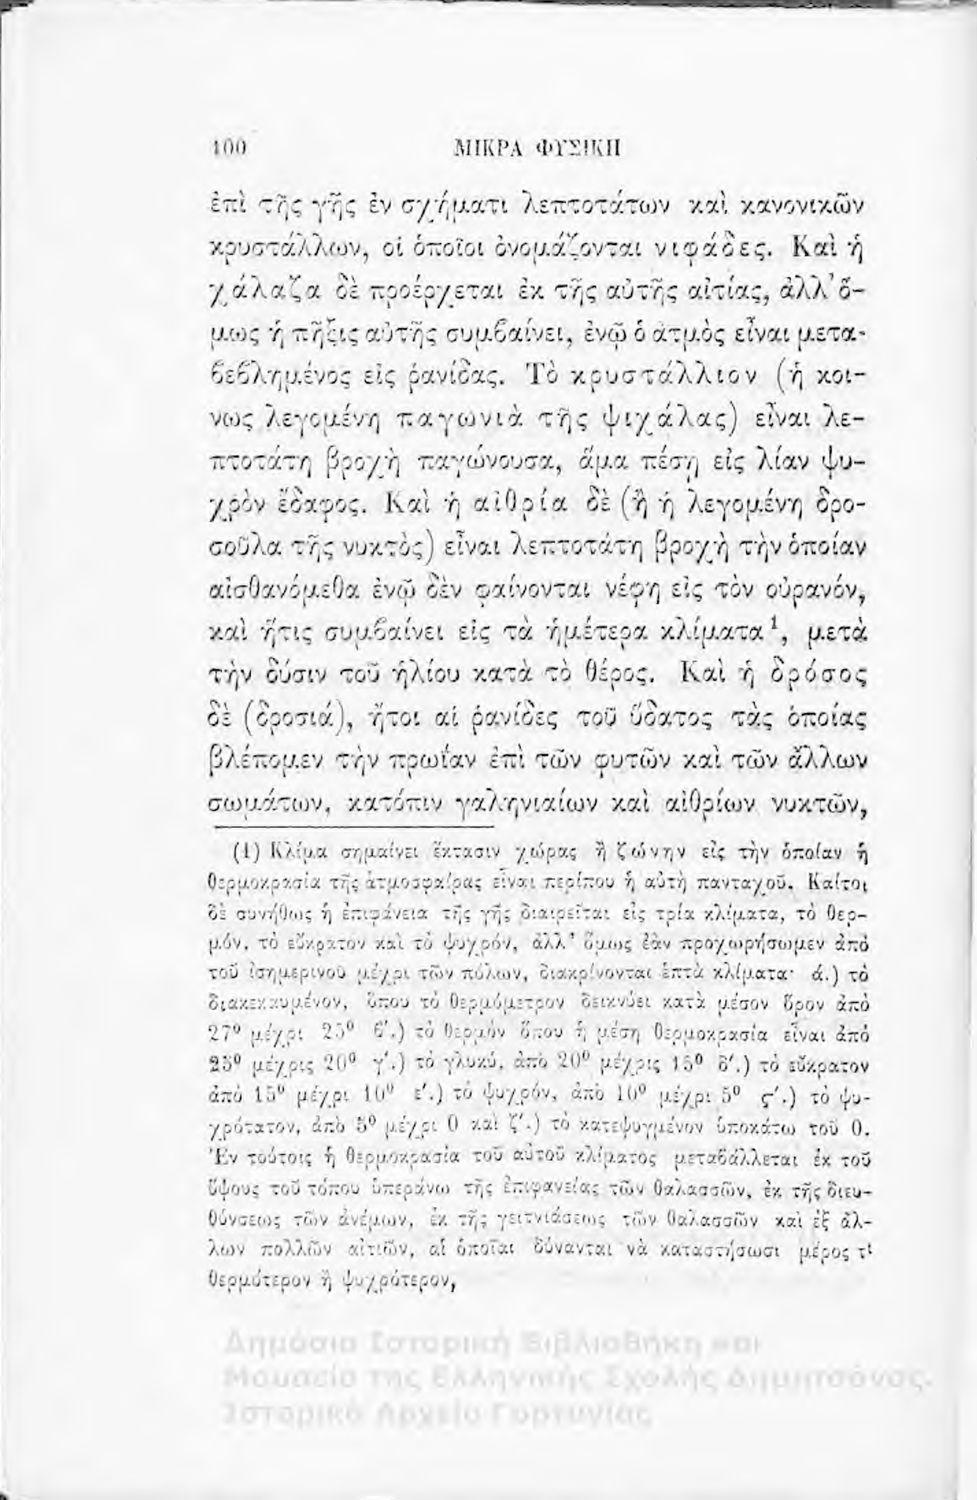 100 ΜΙΚΡΑ ΦΥΣΙΚΗ
ἐπὶ τῆς γῆς ἐν σχήματι λεπτοτάτων καὶ κανονικῶν
κρυστάλλων, οἱ ὁποῖοι ὀνομάζονται νιφάδες. Καὶ ἡ
χάλαζα δὲ προέρχεται ἐκ τῆς αὐτῆς αἰτίας, ἀλλ' ὅ-
μως ἡ πῆξις αὐτῆς συμβαίνει, ἐνῷ ὁ ἀτμὸς εἶναι μετα-
βεβλημένος εἰς ῥανίδας. Τὸ κρυστάλλιον (ἡ κοι-
νως λεγομένη παγωνιὰ τῆς ψιχάλας) εἶναι λε-
πτοτάτη βροχὴ παγώνουσα, ἅμα πέσῃ εἰς λίαν ψυ-
χρὸν ἔδαφος. Καὶ ἡ αἰθρία δὲ (ἢ ἡ λεγομένη δρο-
σοῦλα τῆς νυκτὸς) εἶναι λεπτοτάτη βροχὴ τὴν ὁποίαν
αἰσθανόμεθα ἐνῷ δὲν φαίνονται νέφη εἰς τὸν οὐρανόν,
καὶ ἥτις συμβαίνει εἰς τὰ ἡμέτερα κλίματα¹, μετὰ
τὴν δύσιν τοῦ ἡλίου κατὰ τὸ θέρος. Καὶ ἡ δρόσος
δὲ (δροσιά), ἤτοι αἱ ῥανίδες τοῦ ὕδατος τὰς ὁποίας
βλέπομεν τὴν πρωΐαν ἐπὶ τῶν φυτῶν καὶ τῶν ἄλλων
σωμάτων, κατόπιν γαληνιαίων καὶ αἰθρίων νυκτῶν,
(1) Κλίμα σημαίνει ἔκτασιν χώρας ἢ ζώνην εἰς τὴν ὁποίαν ἡ
θερμοκρασία τῆς ἀτμοσφαίρας εἶναι περίπου ἡ αὐτὴ πανταχοῦ. Καίτοι
δὲ συνήθως ἡ ἐπιφάνεια τῆς γῆς διαιρεῖται εἰς τρία κλίματα, τὸ θερ-
μόν, τὸ εὔκρατον καὶ τὸ ψυχρόν, ἀλλ' ὅμως ἐὰν προχωρήσωμεν ἀπὸ
τοῦ ἰσημερινοῦ μέχρι τῶν πόλων, διακρίνονται ἑπτὰ κλίματα· ά.) τὸ
διακεκαυμένον, ὅπου τὸ θερμόμετρον δεικνύει κατὰ μέσον ὅρον ἀπὸ
27⁰ μέχρι 25⁰ β'.) τὸ θερμόν ὅπου ἡ μέση θερμοκρασία εἶναι ἀπὸ
25⁰ μέχρις 20⁰ γ'.) τὸ γλυκύ, ἀπὸ 20⁰ μέχρις 15⁰ δ'.) τὸ εὔκρατον
ἀπὸ 15⁰ μέχρι 10⁰ ε'.) τὸ ψυχρόν, ἀπὸ 10⁰ μέχρι 5⁰ ς'.) τὸ ψυ-
χρότατον, ἀπὸ 5⁰ μέχρι 0 καὶ ζ'.) τὸ κατεψυγμένον ὑποκάτω τοῦ 0.
Ἐν τούτοις ἡ θερμοκρασία τοῦ αὐτοῦ κλίματος μεταβάλλεται ἐκ τοῦ
ὕψους τοῦ τόπου ὑπεράνω τῆς ἐπιφανείας τῶν θαλασσῶν, ἐκ τῆς διευ-
θύνσεως τῶν ἀνέμων, ἐκ τῆς γειτνιάσεως τῶν θαλασσῶν καὶ ἐξ ἀλ-
λων πολλῶν αἰτιῶν, αἱ ὁποῖαι δύνανται νὰ καταστήσωσι μέρος τι
θερμότερον ἢ ψυχρότερον,
Δημόσια Ιστορική Βιβλιοθήκη και
Μουσείο της Ελληνικής Σχολής Δημητσάνας.
Ιστορικό Αρχείο Γορτυνίας